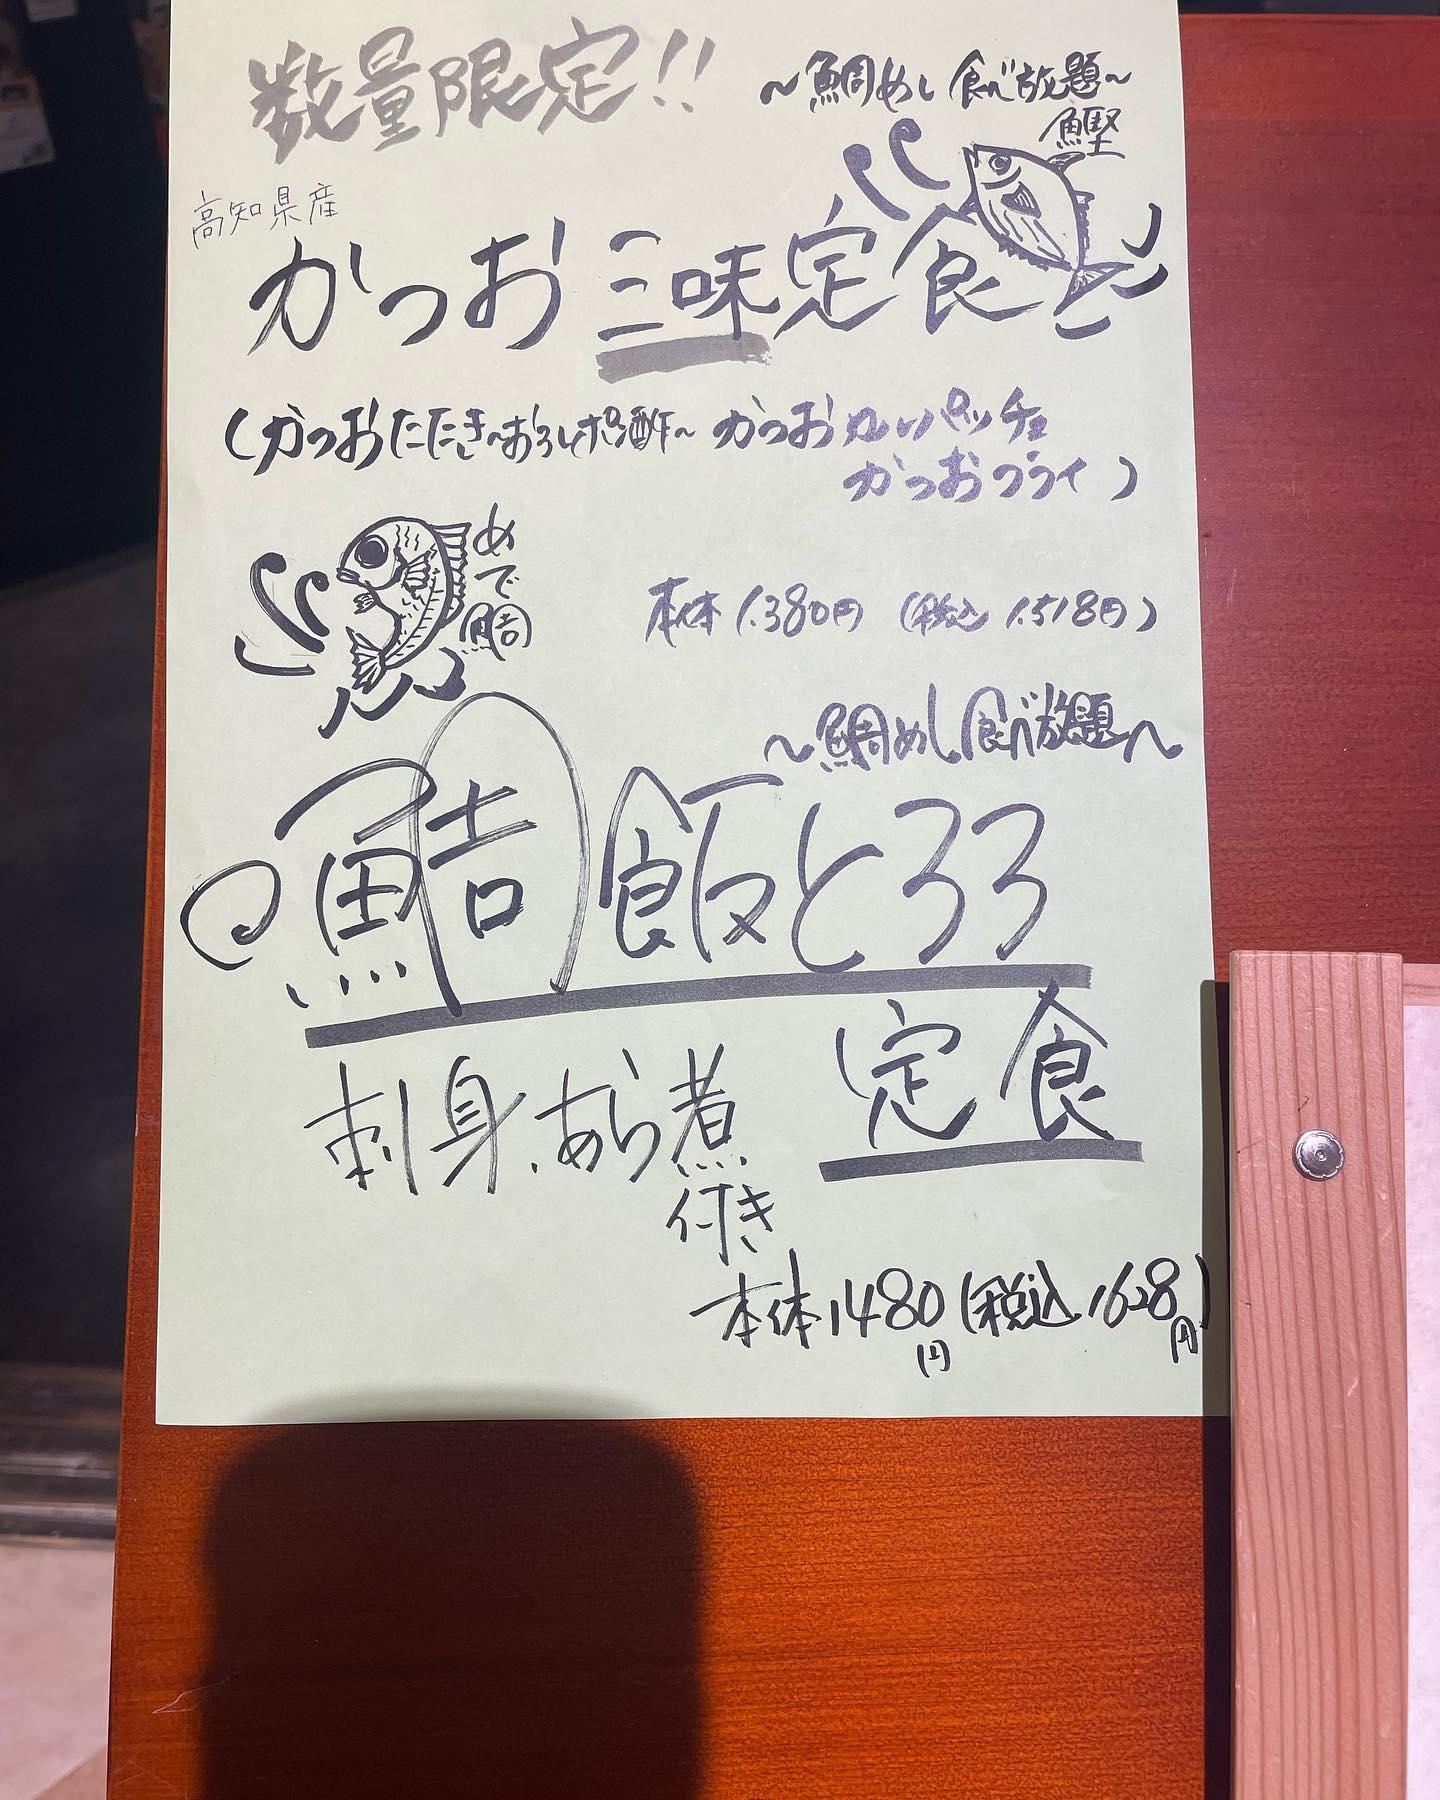 数量限定!!
〜鯛めし食べ放題〜
鰹
高知県産
かつお三味定食
(かつおたたき〜おろしポン酢〜 かつおカルパッチョ
かつおフライ)
めで鯛
本体 1.380円 (税込 1.518円)
〜鯛めし食べ放題〜
鯛飯とろろ
定食
刺身、あら煮
付き
本体1480円(税込1628円)